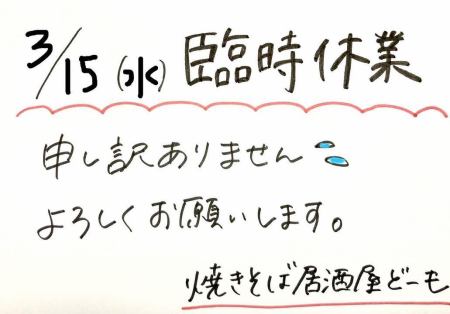 3/15(水) 臨時休業
申し訳ありません
よろしくお願いします。
焼きそば居酒屋どーも